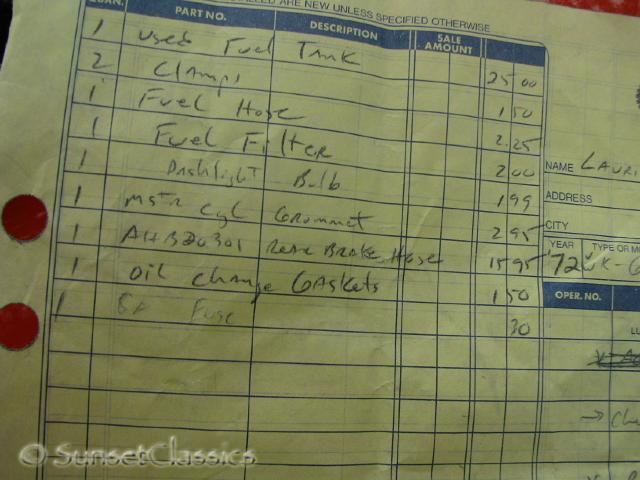 ARE NEW UNLESS SPECIFIED OTHERWISE
QUAN. PART NO. DESCRIPTION SALE AMOUNT
1 used Fuel Tank 25 00
2 Clamps 1 50
1 Fuel Hose 2.25
1 Fuel Filter 2 00
1 Dashlight Bulb 1 99
1 mstr cyl Grommet 2 95
1 AHB20301 Rear Brake Hose 15 95
1 oil change Gaskets 1 50
1 Fuse 30
NAME LAURI
ADDRESS
CITY
YEAR TYPE OR MO
'72
OPER. NO.
© SunsetClassics